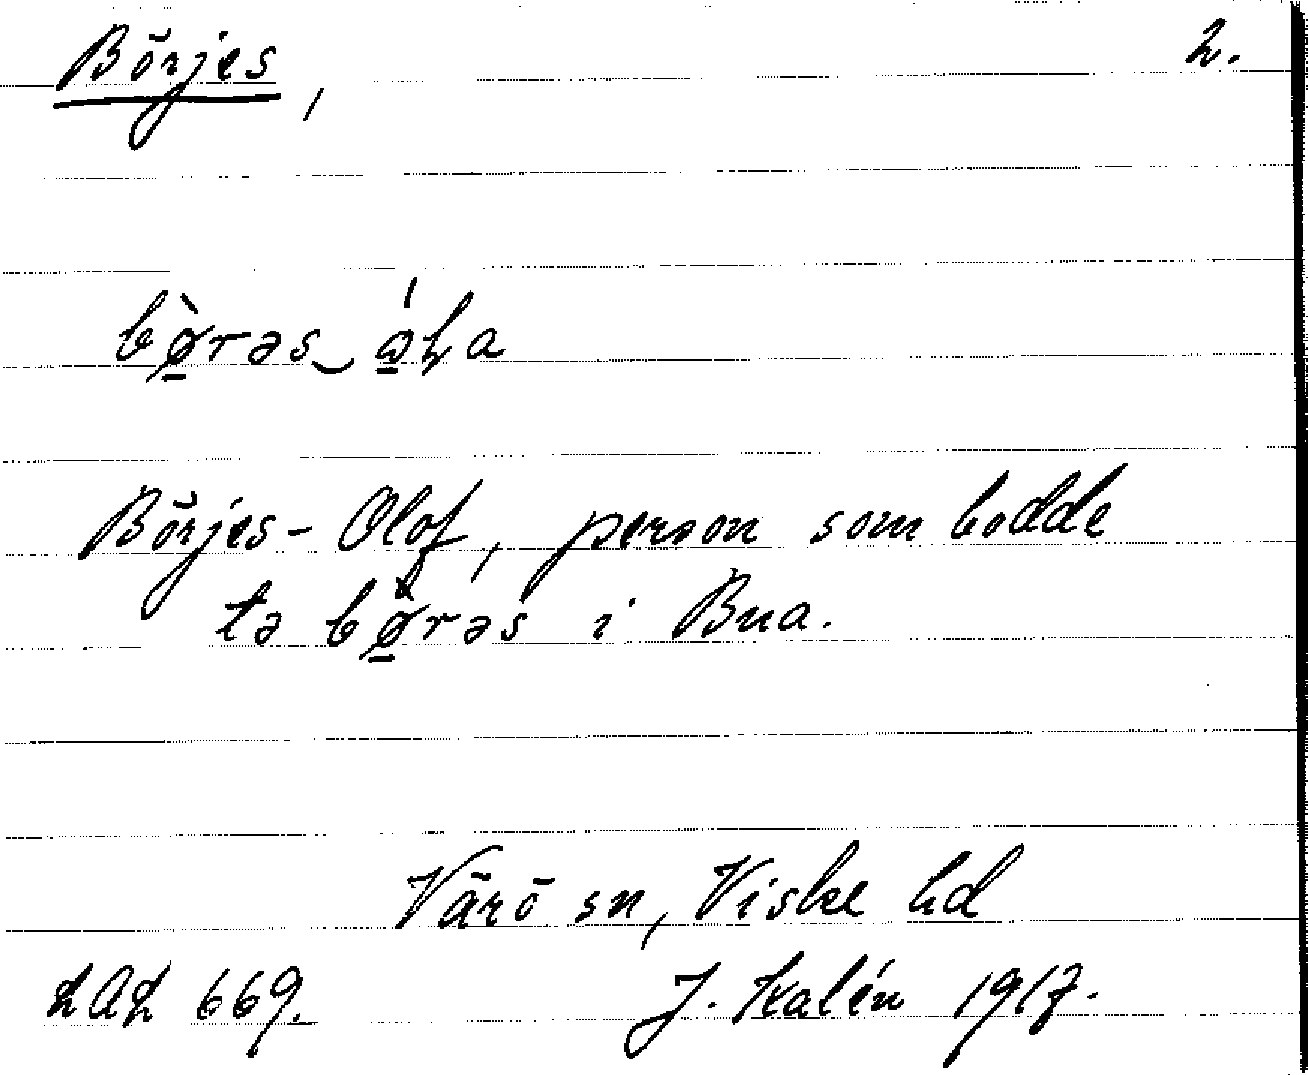 Börjes, 2.
bø̱̀rəs‿ə̱́ɦa
Börjes-Olof, person som bodde
tə bø̱̀rəs i Bua.
Värö sn, Viske hd
669. J. Kalén 1917.